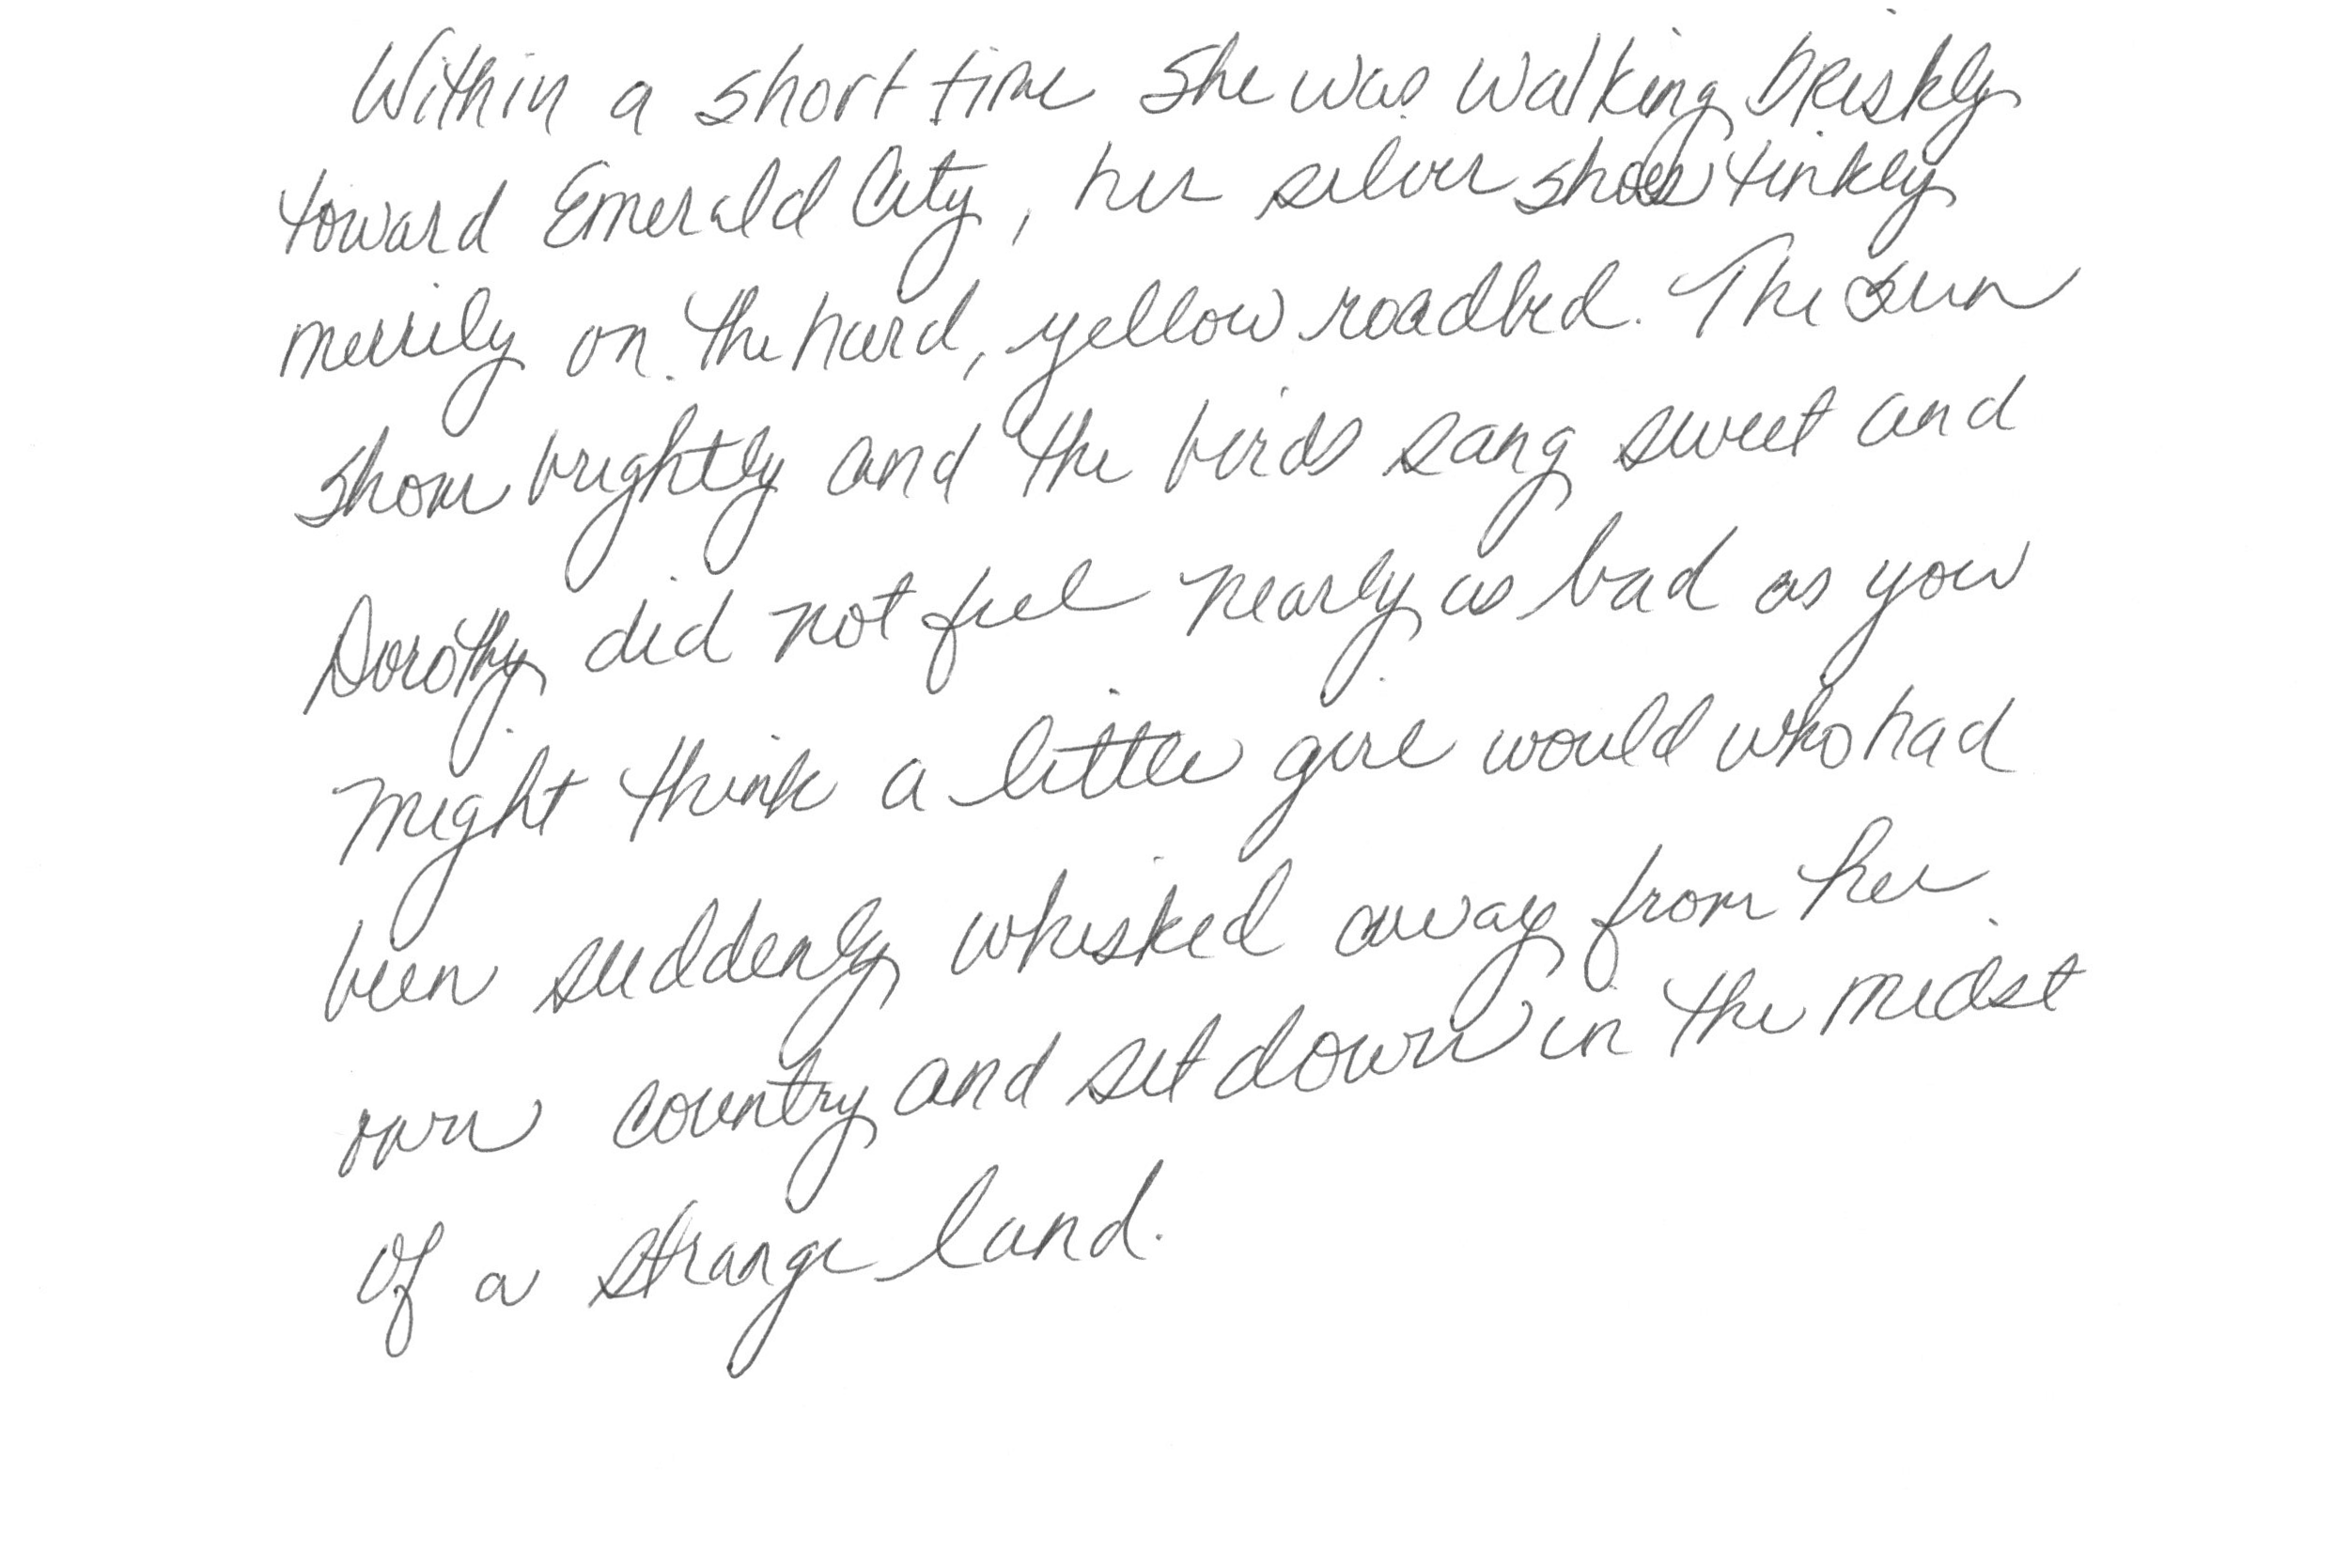 Within a short time she was walking briskly
toward Emerald City, her silver shoes tinkly
merrily on the hard, yellow roadbed. The sun
shone brightly and the birds sang sweet and
Dorothy did not feel nearly as bad as you
might think a little girl would who had
been suddenly whisked away from her
own country and set down in the midst
of a strange land.